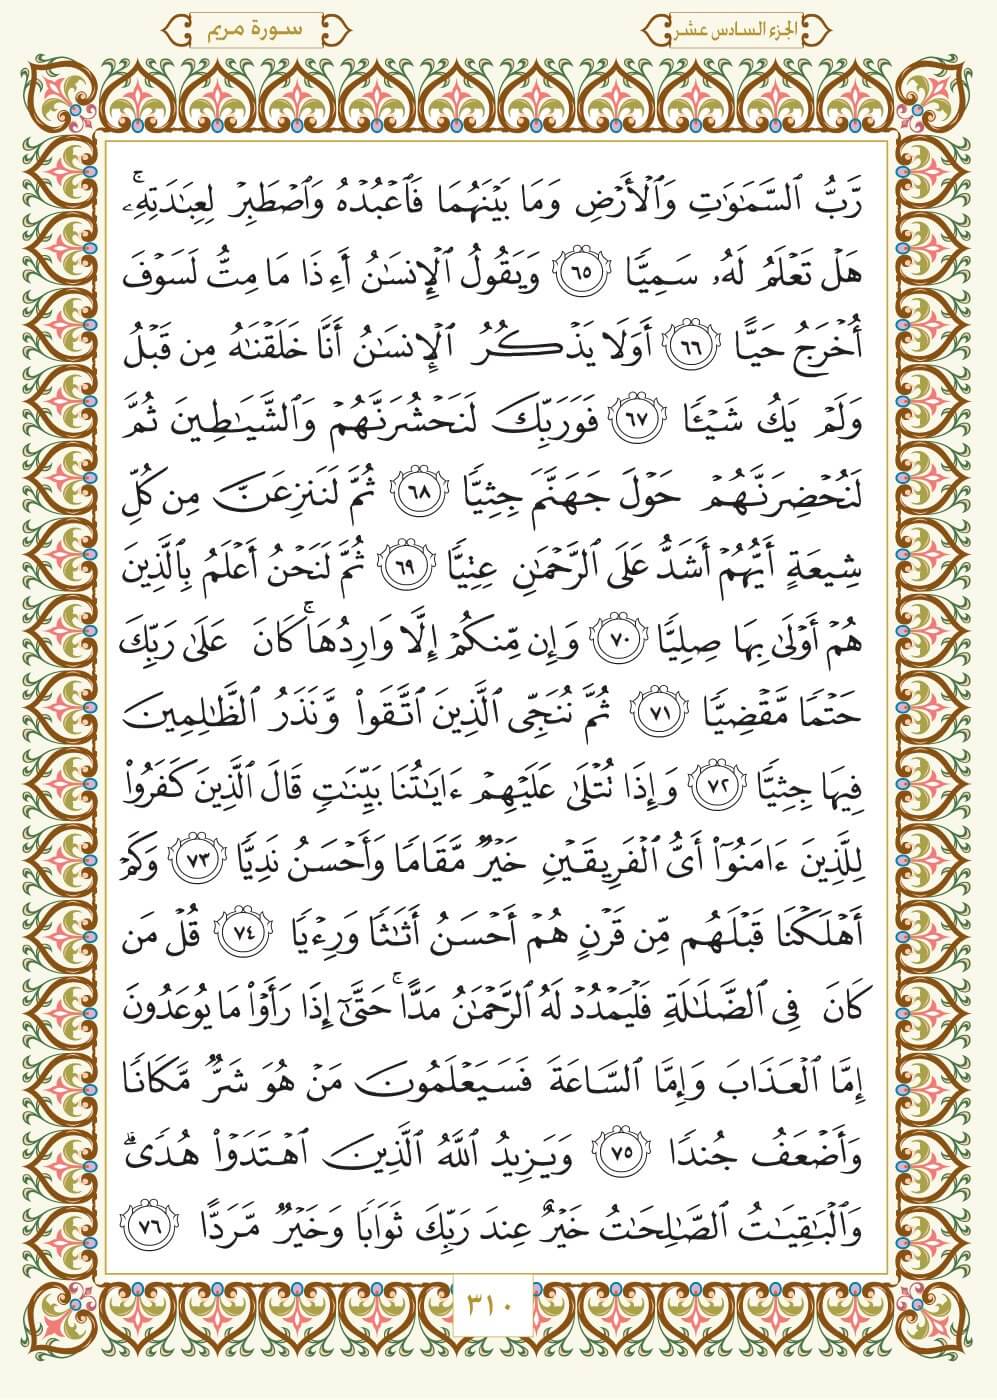 الجزء السادس عشر
سورة مريم
رَّبُّ ٱلسَّمَٰوَٰتِ وَٱلۡأَرۡضِ وَمَا بَيۡنَهُمَا فَٱعۡبُدۡهُ وَٱصۡطَبِرۡ لِعِبَٰدَتِهِۦۚ
هَلۡ تَعۡلَمُ لَهُۥ سَمِيّٗا ٦٥ وَيَقُولُ ٱلۡإِنسَٰنُ أَءِذَا مَا مِتُّ لَسَوۡفَ
أُخۡرَجُ حَيًّا ٦٦ أَوَلَا يَذۡكُرُ ٱلۡإِنسَٰنُ أَنَّا خَلَقۡنَٰهُ مِن قَبۡلُ
وَلَمۡ يَكُ شَيۡـٔٗا ٦٧ فَوَرَبِّكَ لَنَحۡشُرَنَّهُمۡ وَٱلشَّيَٰطِينَ ثُمَّ
لَنُحۡضِرَنَّهُمۡ حَوۡلَ جَهَنَّمَ جِثِيّٗا ٦٨ ثُمَّ لَنَنزِعَنَّ مِن كُلِّ
شِيعَةٍ أَيُّهُمۡ أَشَدُّ عَلَى ٱلرَّحۡمَٰنِ عِتِيّٗا ٦٩ ثُمَّ لَنَحۡنُ أَعۡلَمُ بِٱلَّذِينَ
هُمۡ أَوۡلَىٰ بِهَا صِلِيّٗا ٧٠ وَإِن مِّنكُمۡ إِلَّا وَارِدُهَاۚ كَانَ عَلَىٰ رَبِّكَ
حَتۡمٗا مَّقۡضِيّٗا ٧١ ثُمَّ نُنَجِّي ٱلَّذِينَ ٱتَّقَواْ وَّنَذَرُ ٱلظَّٰلِمِينَ
فِيهَا جِثِيّٗا ٧٢ وَإِذَا تُتۡلَىٰ عَلَيۡهِمۡ ءَايَٰتُنَا بَيِّنَٰتٖ قَالَ ٱلَّذِينَ كَفَرُواْ
لِلَّذِينَ ءَامَنُوٓاْ أَيُّ ٱلۡفَرِيقَيۡنِ خَيۡرٞ مَّقَامٗا وَأَحۡسَنُ نَدِيّٗا ٧٣ وَكَمۡ
أَهۡلَكۡنَا قَبۡلَهُم مِّن قَرۡنٍ هُمۡ أَحۡسَنُ أَثَٰثٗا وَرِءۡيٗا ٧٤ قُلۡ مَن
كَانَ فِي ٱلضَّلَٰلَةِ فَلۡيَمۡدُدۡ لَهُ ٱلرَّحۡمَٰنُ مَدًّاۚ حَتَّىٰٓ إِذَا رَأَوۡاْ مَا يُوعَدُونَ
إِمَّا ٱلۡعَذَابَ وَإِمَّا ٱلسَّاعَةَ فَسَيَعۡلَمُونَ مَنۡ هُوَ شَرّٞ مَّكَانٗا
وَأَضۡعَفُ جُندٗا ٧٥ وَيَزِيدُ ٱللَّهُ ٱلَّذِينَ ٱهۡتَدَوۡاْ هُدٗىۗ
وَٱلۡبَٰقِيَٰتُ ٱلصَّٰلِحَٰتُ خَيۡرٌ عِندَ رَبِّكَ ثَوَابٗا وَخَيۡرٞ مَّرَدًّا ٧٦
٣١٠